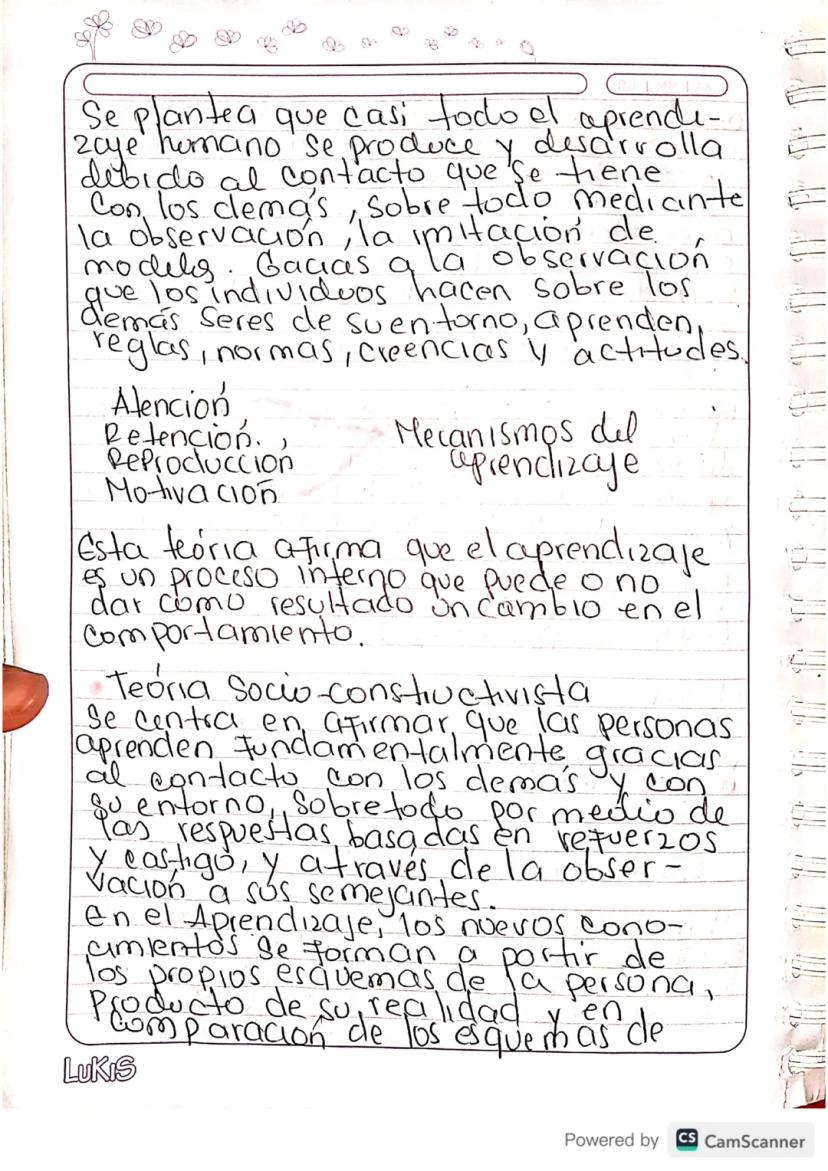 Se plantea que casi todo el aprendi-
zaje humano se produce y desarrolla
debido al contacto que se tiene
con los demás, sobre todo mediante
la observación, la imitación de
modelos. Gacias a la observación
que los individuos hacen sobre los
demás seres de su entorno, aprenden,
reglas, normas, creencias y actitudes.
Atención,
Retención.,
Reproducción
Motivación
Mecanismos del
aprendizaje
Esta teória afirma que el aprendizaje
es un proceso interno que puede o no
dar como resultado un cambio en el
comportamiento.
Teória Socio-constructivista
Se centra en afirmar que las personas
aprenden fundamentalmente gracias
al contacto con los demás y con
su entorno, sobre todo por medio de
las respuestas basadas en refuerzos
y castigo, y através de la obser-
vación a sus semejantes.
en el Aprendizaje, los nuevos cono-
cimientos se forman a partir de
los propios esquemas de la persona,
Producto de su realidad y en
comparación de los esquemas de
LuKIS
Powered by CS CamScanner